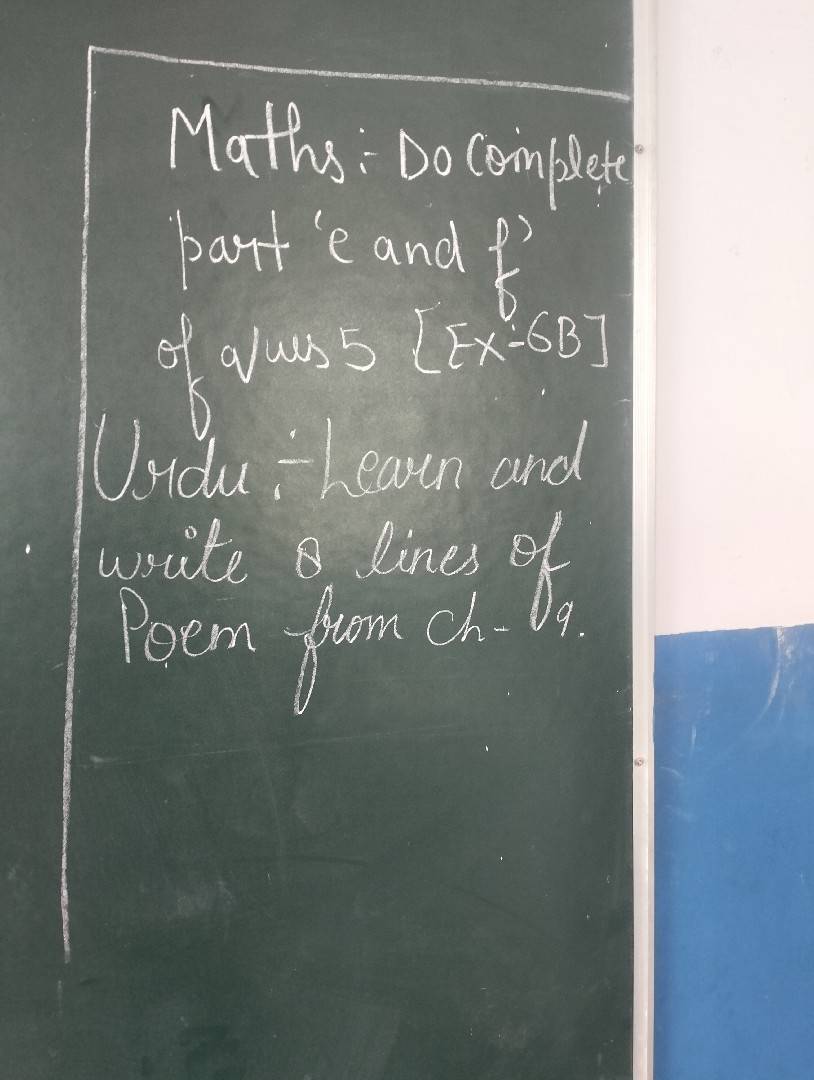 Maths :- Do Complete
part 'e and f'
of Ques 5 [Ex-:6B]
Urdu :- Learn and
write 8 lines of
Poem from ch- 9.